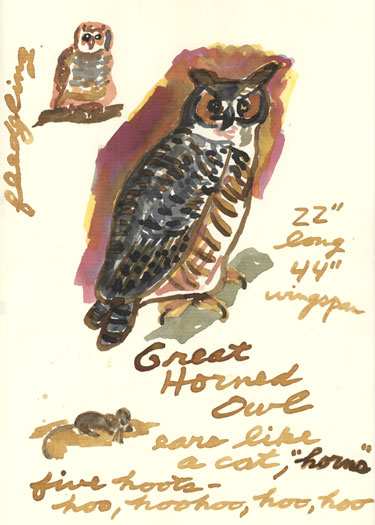 fledgling
22"
long
44"
wingspan
Great
Horned
Owl
ears like
a cat, "horns"
five hoots-
hoo, hoohoo, hoo, hoo